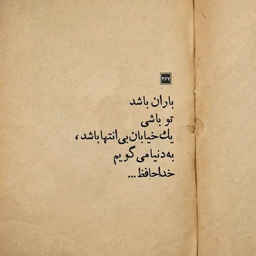 ۲۶۷
باران باشد
تو باشی
یك خیابان بی انتها باشد،
به دنیا می گویم
خداحافظ...